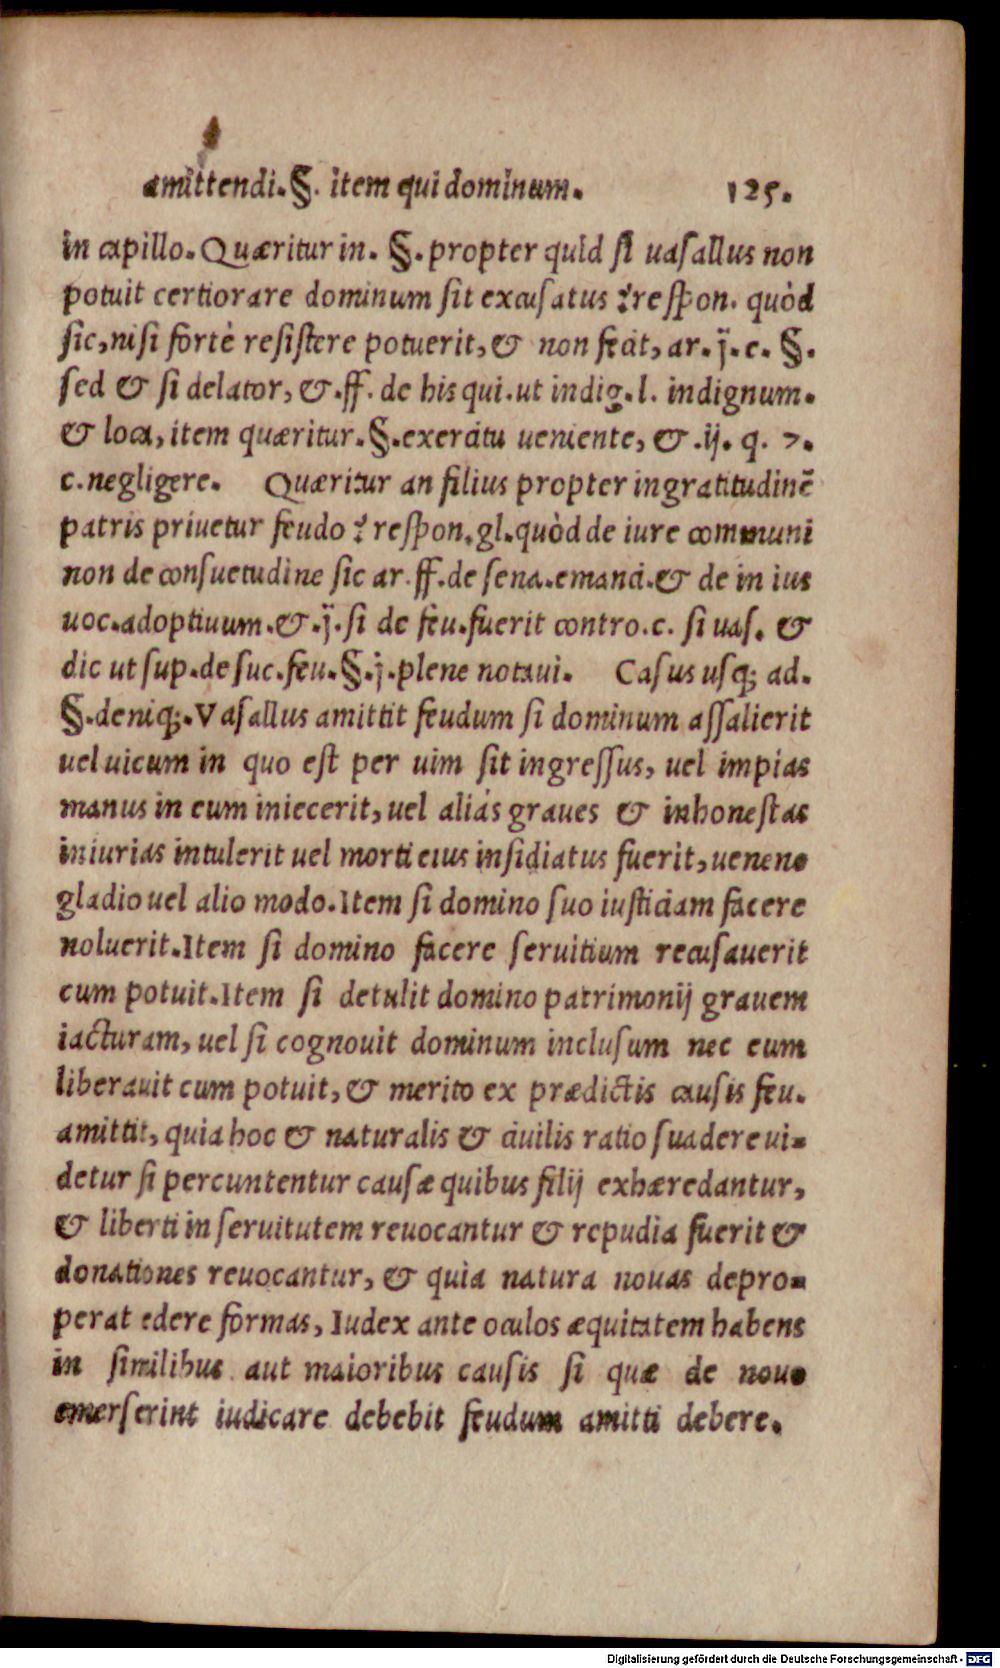 amittendi. §. item qui dominum. 125.
in capillo. Quæritur in. §. propter quid si uasallus non
potuit certiorare dominum sit excusatus ? respon. quòd
sic, nisi fortè resistere potuerit, & non fecit, ar. j. e. §.
sed & si delator, &. ff. de his qui. ut indig. l. indignum.
& loca, item quæritur. §. exercitu ueniente, & .ij. q. 7.
c. negligere. Quæritur an filius propter ingratitudinē
patris priuetur feudo ? respon. gl. quòd de iure communi
non de consuetudine sic ar. ff. de sena. emanci. & de in ius
uoc. adoptiuum. &. j. si de feu. fuerit contro. c. si uas. &
dic ut sup. de suc. feu. §. j. plene notaui. Casus usq; ad.
§. deniq;. Vasallus amittit feudum si dominum assalierit
uel uicum in quo est per uim sit ingressus, uel impias
manus in eum iniecerit, uel aliás graues & inhonestas
iniurias intulerit uel morti eius insidiatus fuerit, ueneno
gladio uel alio modo. Item si domino suo iusticiam facere
noluerit. Item si domino facere seruitium recusauerit
cum potuit. Item si detulit domino patrimonij grauem
iacturam, uel si cognouit dominum inclusum nec eum
liberauit cum potuit, & merito ex prædictis causis feu.
amittit, quia hoc & naturalis & ciuilis ratio suadere ui-
detur si percuntentur causæ quibus filij exhæredantur,
& liberti in seruitutem reuocantur & repudia fuerit &
donationes reuocantur, & quia natura nouas depro-
perat edere formas, Iudex ante oculos æquitatem habens
in similibus aut maioribus causis si quæ de nouo
emerserint iudicare debebit feudum amitti debere.
Digitalisierung gefördert durch die Deutsche Forschungsgemeinschaft - DFG